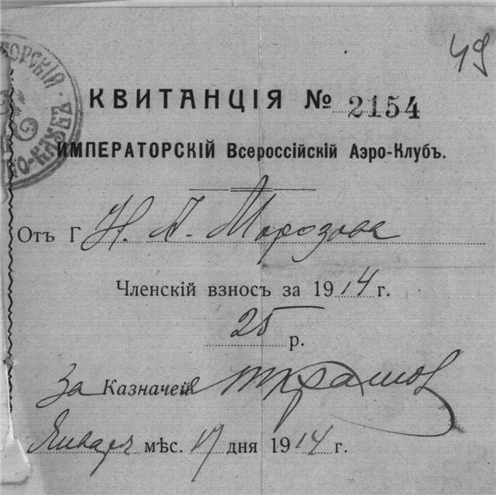 49
КВИТАНЦІЯ № 2154
ИМПЕРАТОРСКІЙ Всероссійскій Аэро-Клубъ.
Отъ Г Н. А. Морозова
Членскій взносъ за 1914 г.
25 р.
За Казначея
Января мѣс. 17 дня 1914 г.